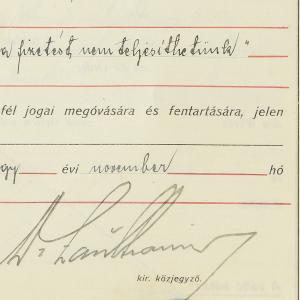 a fizetést nem teljesíthetünk"
fél jogai megóvására és fentartására, jelen
évi november hó
kir. közjegyző.